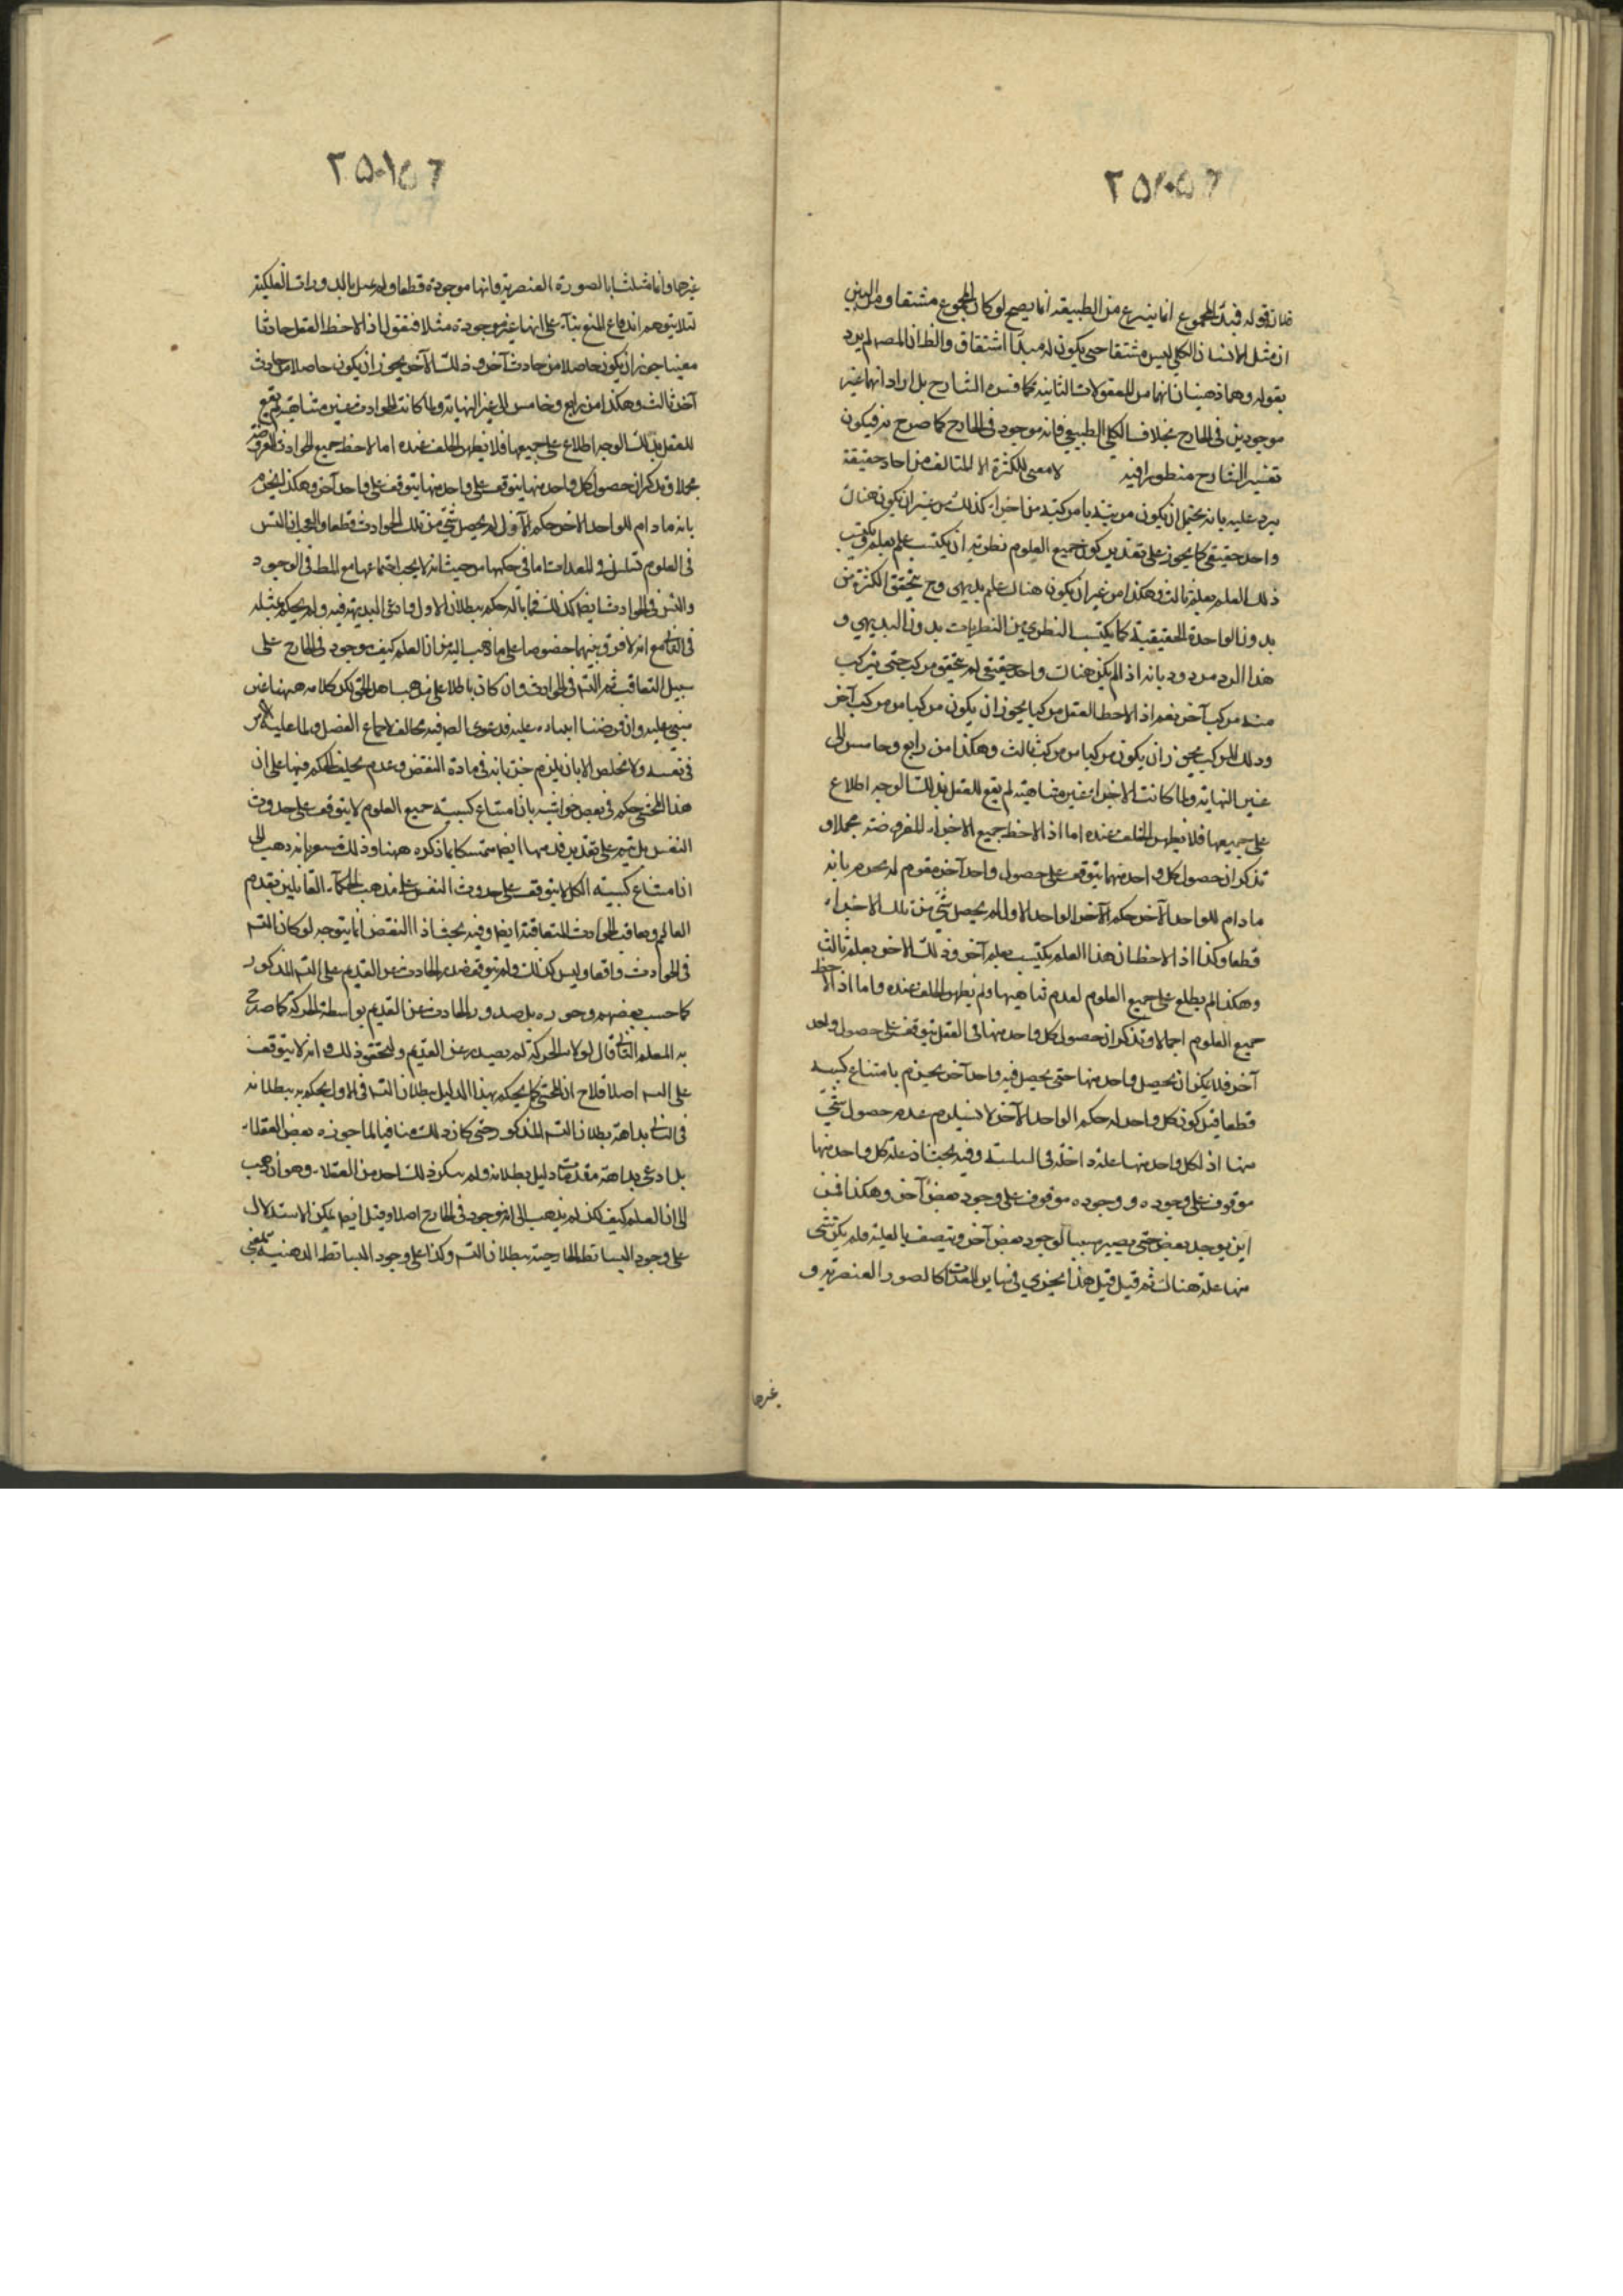 فان قوله فمبدأ المجموع انما ينتزع من الطبيعة انما يصح لو كان المجموع مشتقا ومن البين
ان مثل الانسان الكلي ليس مشتقا حتى يكون له مبدأ اشتقاق والظ ان المصه لم يرد
بقوله وهما ذهنيان انهما من المعقولات الثانية كما فسره الشارح بل اراد انهما غير
موجودين في الخارج بخلاف الكلي الطبيعي فانه موجود في الخارج كما صرح به فيكون
تفسير الشارح منظورا فيه لا معنى للكثرة الا المتالف من احاد حقيقة
يرد عليه بانه يحتمل ان يكون مركبة من اجزاء كذلك من غير ان يكون هناك
واحد حقيقي كما يجوز على تقدير كون جميع العلوم نظرية ان يكتسب علم بعلم ويكتسب
ذلك العلم بعلم ثالث وهكذا من غير ان يكون هناك علم بديهي وح يتحقق الكثرة من
بدون الواحدة الحقيقية كما يكتسب النظري من النظريات بدون البديهي و
هذا الرد مردود بانه اذا لم يكن هناك واحد حقيقي لم يتحقق مركب حتى يتركب
منه مركب آخر نعم اذا لاحظ العقل مركبا يجوز ان يكون مركبا من مركب آخر
وذلك المركب يجوز ان يكون مركبا من مركب ثالث وهكذا من رابع وخامس الى
غير النهاية ولما كانت الاجزاء غير متناهية لم يقع للعقل بذلك الوجه اطلاع
على جميعها فلا يظهر الخلف عنده اما اذا لاحظ جميع الاجزاء المفروضة مجملا و
تذكر ان حصول كل واحد منهما يتوقف على حصول واحد آخر مقوم له يجزم بانه
ما دام للواحد الآخر حكم الآخر الواحد الاول لم يحصل شئ من تلك الاجزاء
قطعا وكذا اذا لاحظ ان هذا العلم يكتسب بعلم آخر وذلك الاخر بعلم ثالث
وهكذا لم يطلع على جميع العلوم لعدم تناهيها ولم يظهر الخلف عنده واما اذا لاحظ
جميع العلوم اجمالا وتذكر ان حصول كل واحد منها في العقل يتوقف على حصول واحد
آخر فلا يمكن ان يحصل واحد منها حتى يحصل فيه واحد آخر يجزم بامتناع كسبية
قطعا قيل كون كل واحد له حكم الواحد الآخر لا يستلزم عدم حصول شئ
منها اذ لكل واحد منها علة داخلة في السلسلة وفيه بحث اذ علة كل واحد منها
موقوف على وجوده ووجوده موقوف على وجود بعض آخر وهكذا فمن
اين يوجد بعض حتى يصير سببا لوجود بعض آخر ويتصف بالعلية فلم يكن شئ
منها علة هناك ثم قيل قيل هذا يجري في نهاية المعدات كالصور العنصرية و
غيرها
غيرها وانما مثلنا بالصورة العنصرية فانها موجودة قطعا ولم يمثل بالدورات الفلكية
لئلا يتوهم اندفاع المنع بناء على انها غير موجودة مثلا فنقول اذا لاحظ العقل حادثا
معينا جوز ان يكون حاصلا من حادث آخر وذلك الآخر يجوز ان يكون حاصلا من حادث
آخر ثالث وهكذا من رابع وخامس الى غير النهاية ولما كانت الحوادث غير متناهية لم يقع
للعقل بذلك الوجه اطلاع على جميعها فلا يظهر الخلف عنده اما لاحظ جميع الحوادث المفروضة
مجملا وتذكر ان حصول كل واحد منها يتوقف على واحد منها يتوقف على واحد آخر وهكذا يجزم
بانه ما دام للواحد الاخر حكم الاول لم يحصل شئ من تلك الحوادث قطعا والحق ان التس
في العلوم تسلسل في المعدات اما في حكمها من حيث انه لا يجب اجتماعها مع المط في الوجود
والتس في الحوادث ايضا كذلك فما باله حكم ببطلان الاول وادعى البديهة فيه ولم يحكم بمثله
في الثاني مع انه لا فرق بينهما خصوصا على ما ذهب اليه من ان العلم كيف موجود في الخارج على
سبيل التعاقب ثم التسه في الحوادث وان كان باطلا على مذهب اهل الحق لكن كلامه ههنا غير
مبني عليه وان فرضنا ابتناءه عليه فدعوى البديهة فيه مخالف لاجماع الفضل ولما عليه الامر
في نفسه ولا مخلص الا بان يلتزم جريانه في مادة النقض وعدم تخلف الحكم فيها على ان
هذا المحشي حكم في بعض حواشيه بان امتناع كسبية جميع العلوم لا يتوقف على حدوث
النفس بل يتم على تقدير قدمها ايضا متمسكا بما ذكره ههنا وذلك مشعر بانه ذهب الى
ان امتناع كسبية الكل لا يتوقف على حدوث النفس على مذهب الحكماء القائلين بقدم
العالم وتعاقب الحوادث المتعاقبة ايضا وفيه بحث اذ النقض انما يتوجه لو كان التسه
في الحوادث واقعا وليس كذلك ولم يتوقف صدور الحادث عن القديم على التسه المذكور
كما حسب بعضهم وجوزه بل صدور الحادث عن القديم بواسطة الحركة كما صرح
به المعلم الثاني قال لولا الحركة لم يصدر عن القديم ولتحقق ذلك وانه لا يتوقف
على التسه اصلا فلاح ان المحشي كما يحكم بهذا الدليل ببطلان التسه في الاول يحكم به ببطلانه
في الثاني بداهة بطلان التسه المذكور حتى كان ذلك منافيا لما جوزه بعض العقلاء
بل ادعى بداهة مقدمات دليل بطلانه ولم ينكر ذلك احد من العقلاء وهو ان ذهب
الى ان العلم كيف لكن لم يذهب الى انه موجود في الخارج اصلا وقيل ايضا يمكن الاستدلال
على وجود البسائط الخارجية ببطلان التسه وكذا على وجود البسائط الذهنية